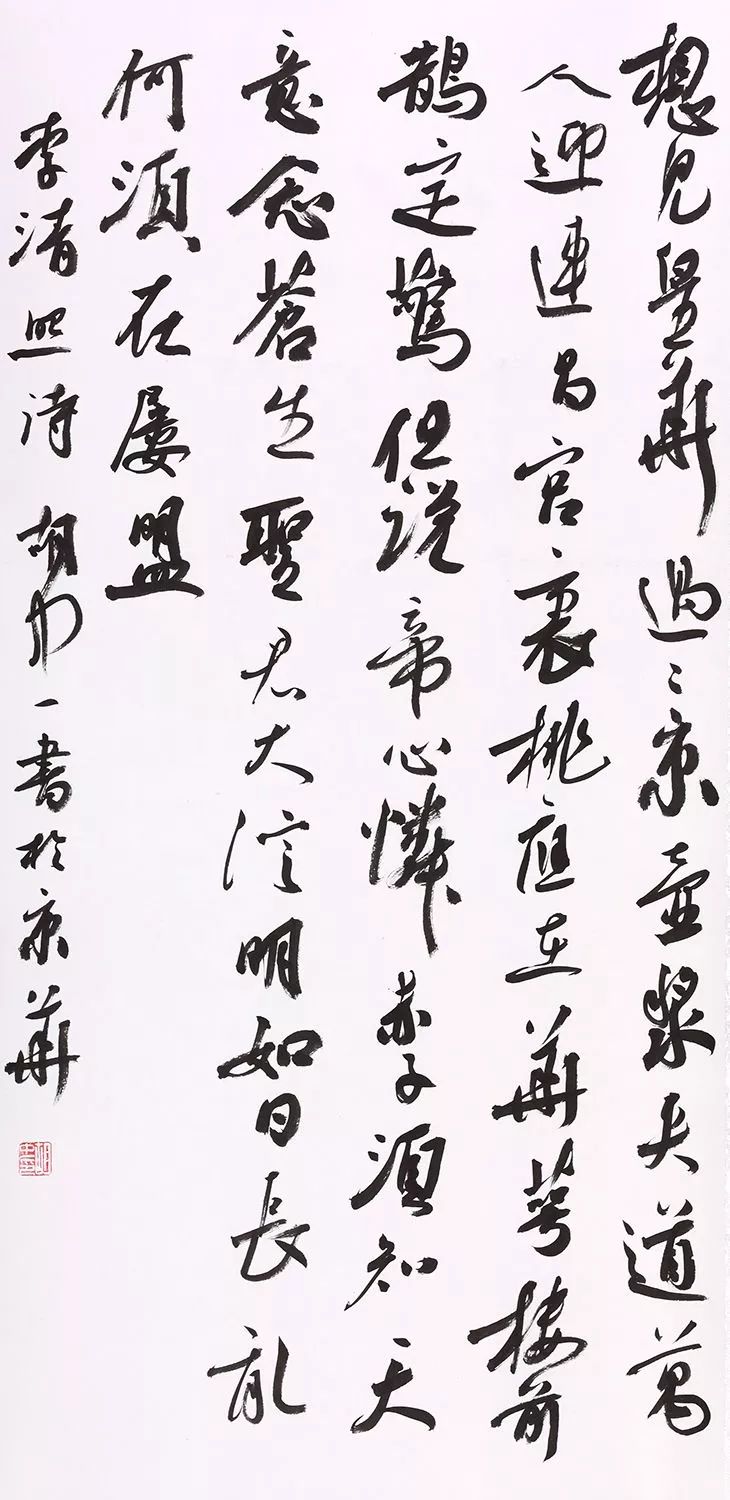 想見皇華過二京壺漿夾道萬
人迎連昌宮裏桃應在華萼樓前
鵲定驚但說帝心憐赤子須知天
意念蒼生聖君大信明如日長亂
何須在屢盟
李清照詩 胡一書於京華